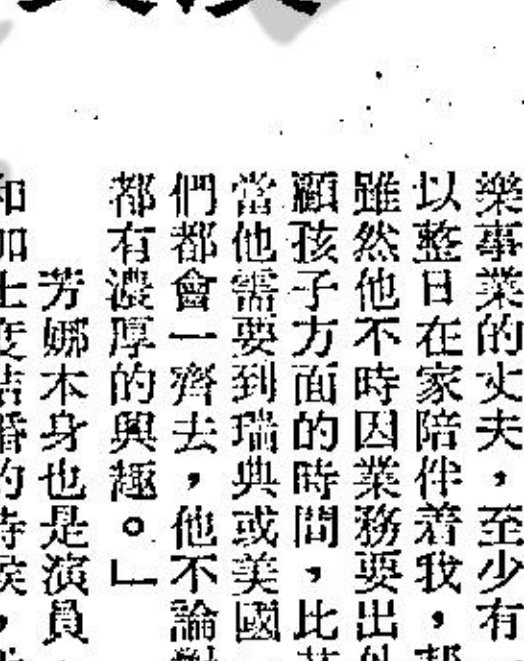 樂事業的丈夫，至少有
以整日在家陪伴着我，都
雖然他不時因業務要出外
顧孩子方面的時間，比
當他需要到瑞典或美國
們都會一齊去，他不論對
都有濃厚的興趣。」
芳娜本身也是演員
和加士度結婚的時候，